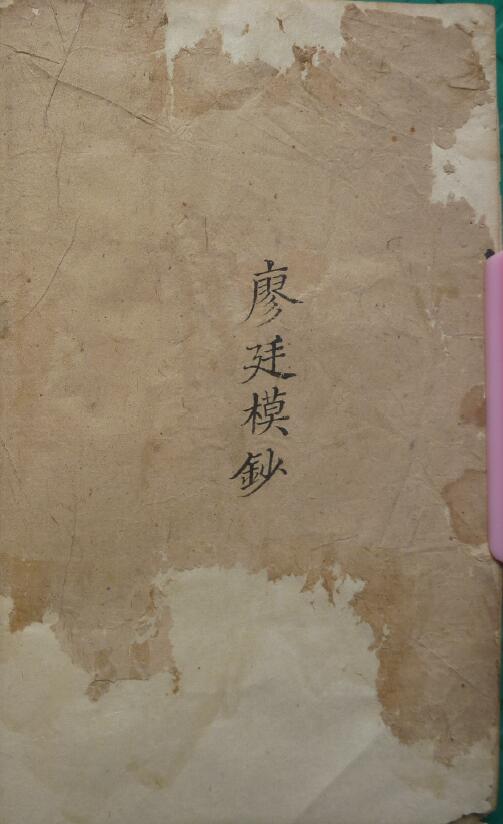 廖廷模鈔